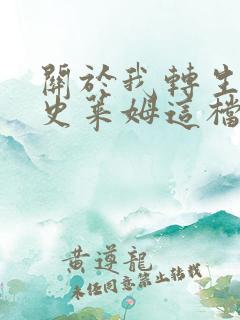 關於我轉生
史萊姆這檔
黃遵龍
未經同意禁止轉載